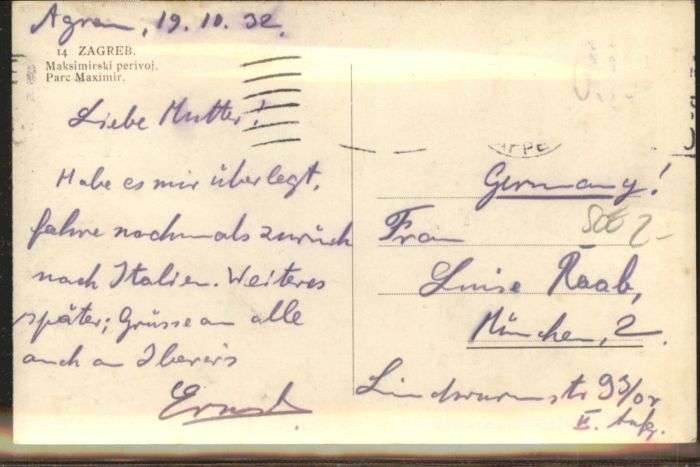 Agram, 19.10.32.
14 ZAGREB.
Maksimirski perivoj.
Parc Maximir.
Liebe Mutter!
Habe es mir überlegt,
fahre nochmals zurück
nach Italien. Weiteres
später; Grüsse an alle
auch an
Ernst.
Germany!
Frau
Luise Raab,
München, 2.
Lindwurmstr 93/
II. Aufg.